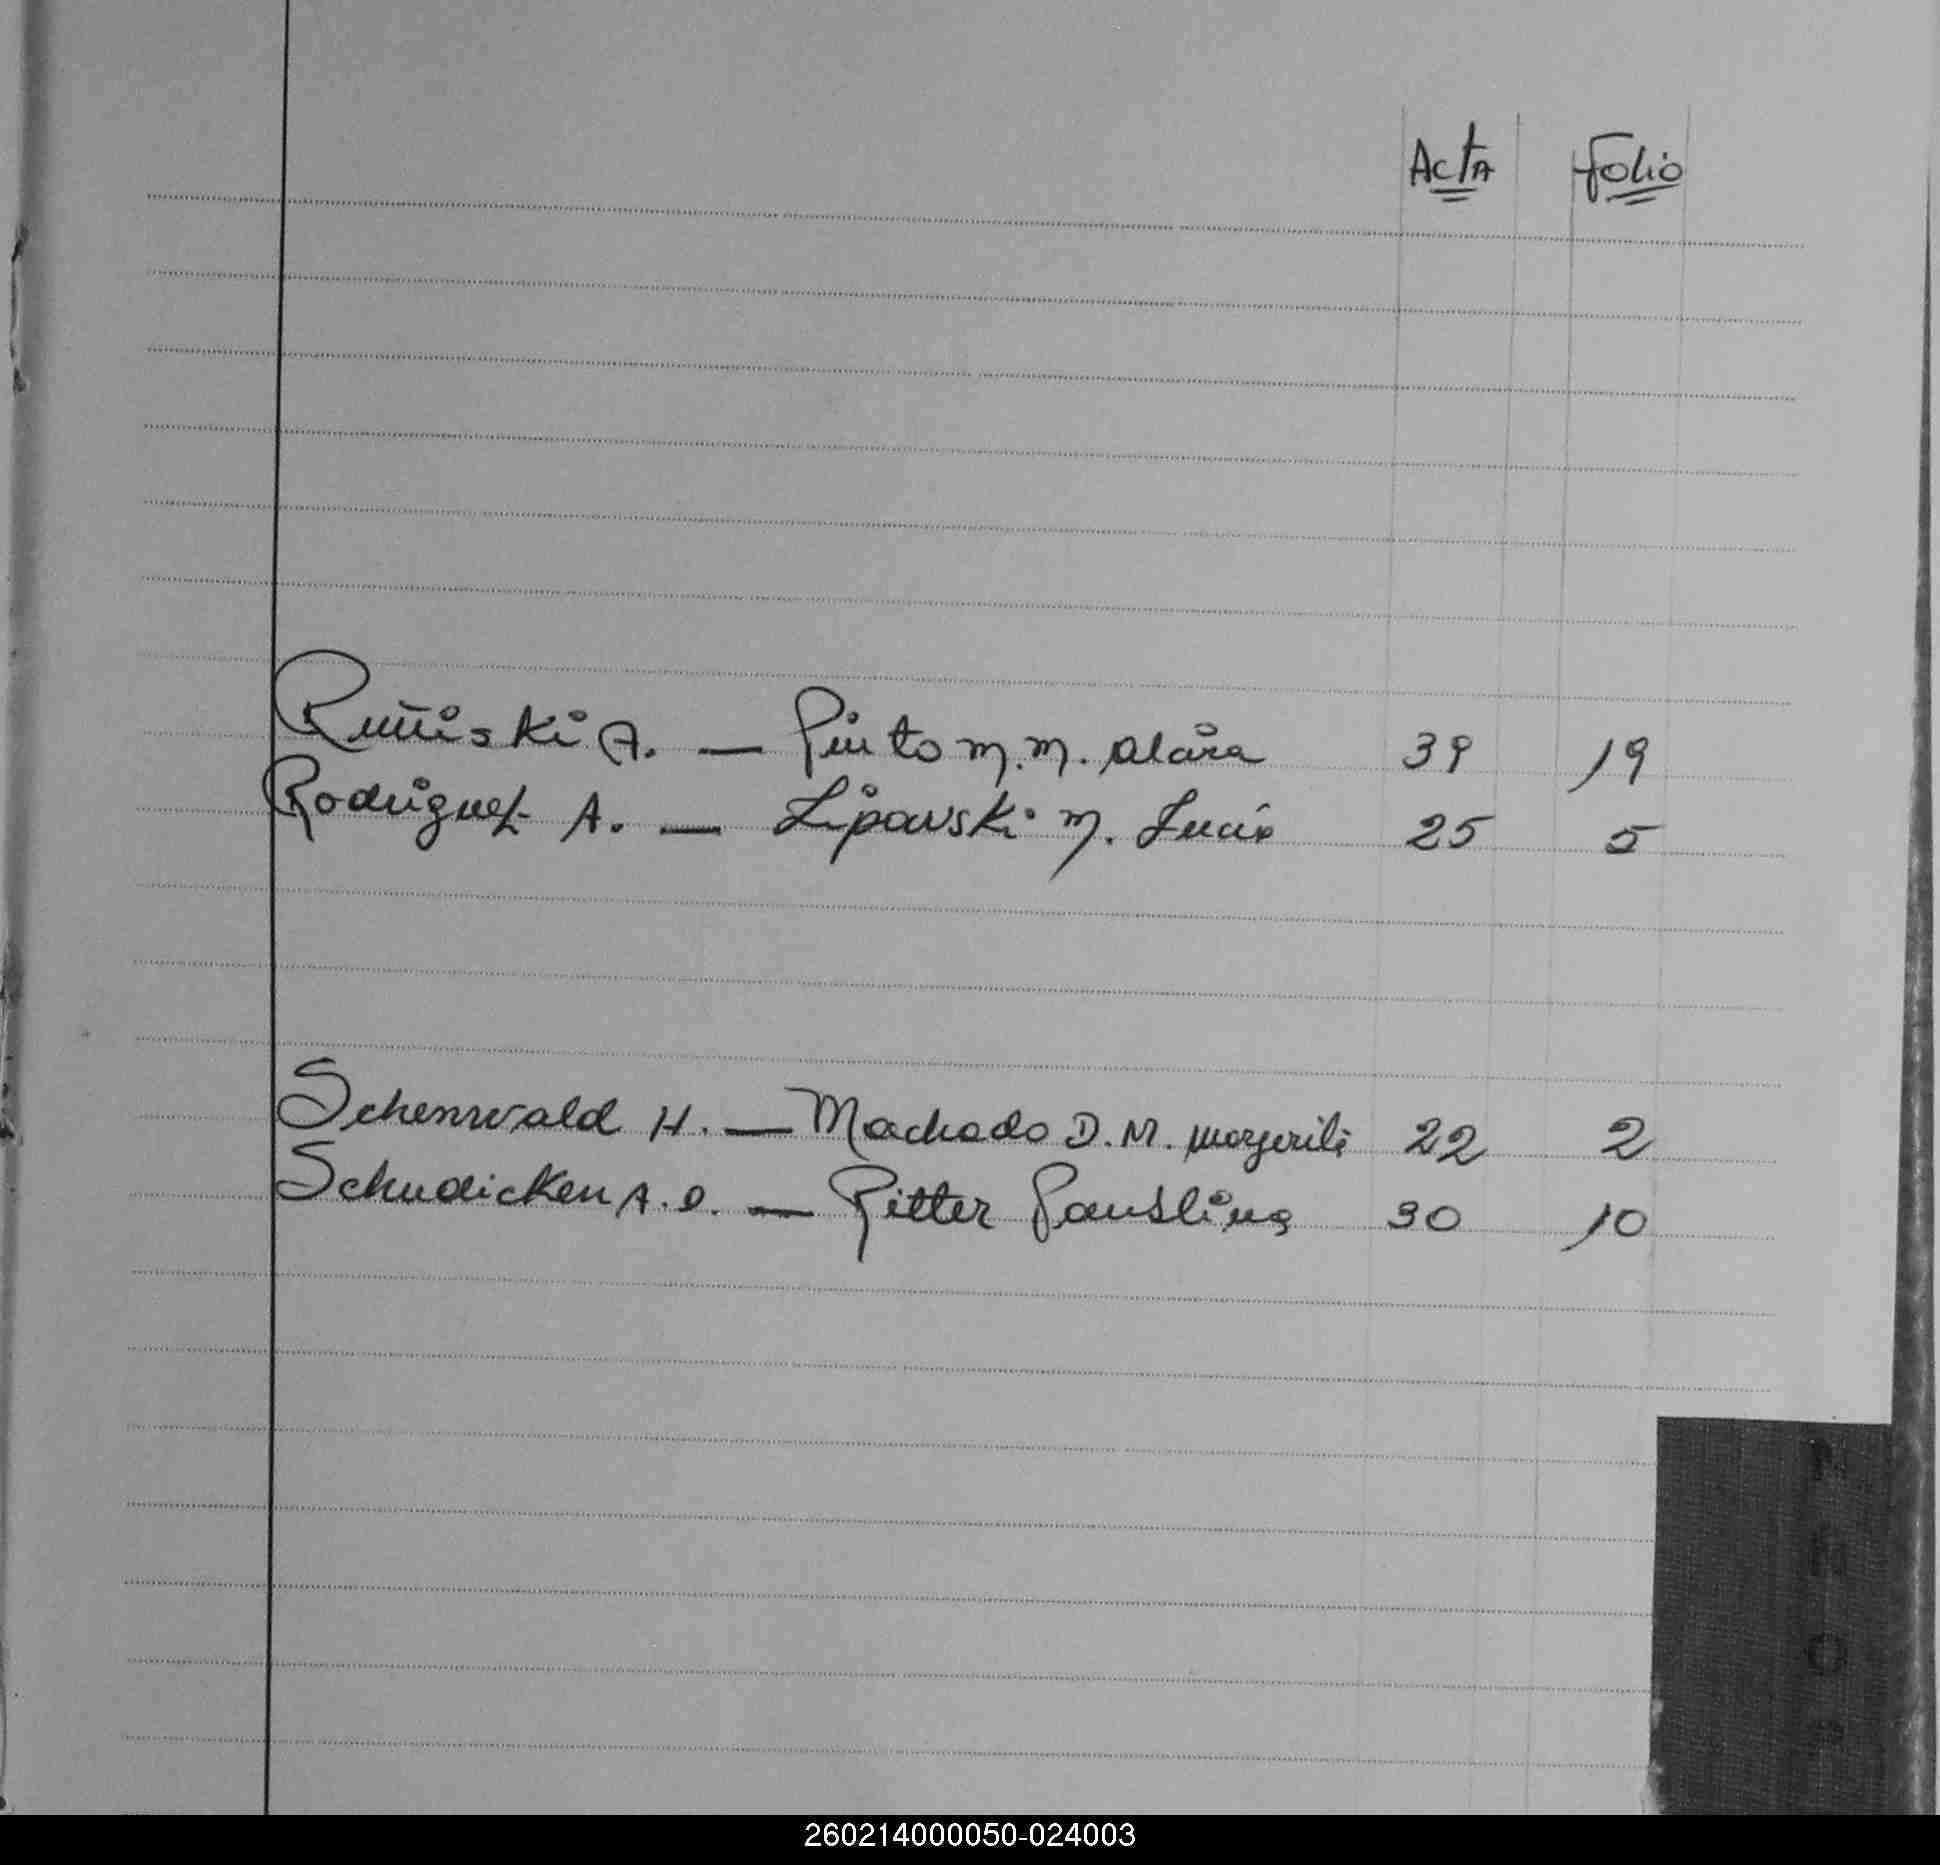 Acta Folio
A. — Pinto M. M. 39 19
Rodriguez A. — Lipowski M. Lucia 25 5
Schenwald H. — Machado D. M. 22 2
Schudicken A. O. — Ritter 30 10
260214000050-024003